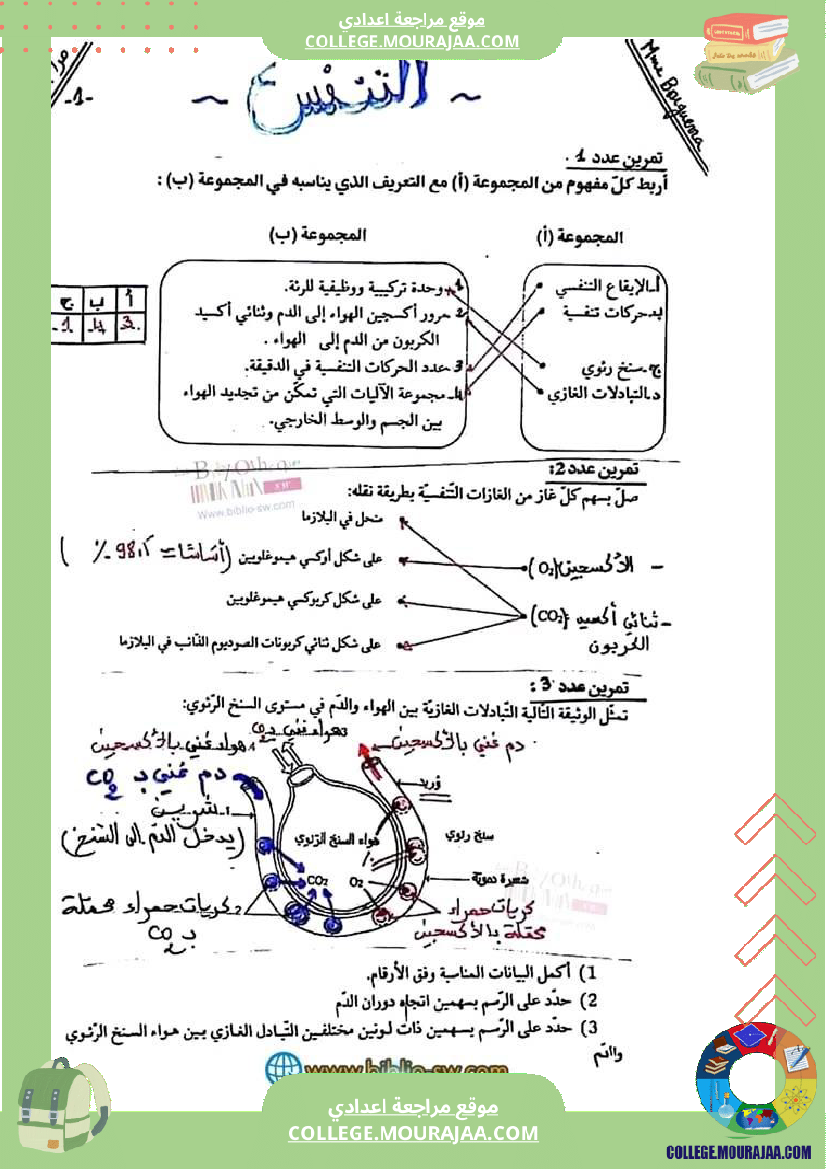 موقع مراجعة اعدادي
COLLEGE.MOURAJAA.COM
-1-
~ التنفس ~
Mme Borguema
تمرين عدد 1 .
أربط كلّ مفهوم من المجموعة (أ) مع التعريف الذي يناسبه في المجموعة (ب) :
المجموعة (أ)
المجموعة (ب)
أ-الإيقاع التنفسي
ب-حركات تنفسية
ج-سنخ رئوي
د-التبادلات الغازي
1-وحدة تركيبية ووظيفية للرئة.
2-مرور أكسجين الهواء إلى الدم وثنائي أكسيد
الكربون من الدم إلى الهواء .
3-عدد الحركات التنفسية في الدقيقة.
4-مجموعة الآليات التي تمكّن من تجديد الهواء
بين الجسم والوسط الخارجي.
أ ب ج
3 4 1
تمرين عدد 2:
BabyOtheque
www.biblio-sw.com
صل بسهم كلّ غاز من الغازات التّنفسيّة بطريقة نقله:
منحل في البلازما
على شكل أوكسي هيموغلوبين (أساسًا = 98% )
على شكل كربوكسي هيموغلوبين
على شكل ثنائي كربونات الصوديوم الذّائب في البلازما
- الأكسجين (O₂)
- ثنائي أكسيد (CO₂)
الكربون
تمرين عدد 3 :
تمثّل الوثيقة التّالية التّبادلات الغازيّة بين الهواء والدّم في مستوى السنخ الرّئوي:
3هواء غني بـ CO₂
4هواء غني بالأكسجين
دم غني بالأكسجين
دم غني بـ CO₂
وريد
1-شريين
(يدخل الدّم إلى السّنخ)
هواء السنخ الرّئوي
سنخ رئوي
شعيرة دموية
CO₂
O₂
2كريات حمراء محمّلة
بـ CO₂
كريات حمراء
محمّلة بالأكسجين
1) أكمل البيانات المناسبة وفق الأرقام.
2) حدّد على الرّسم بسهمين اتجاه دوران الدّم
3) حدّد على الرّسم بسهمين ذات لونين مختلفين التّبادل الغازي بين هواء السنخ الرّئوي
والدّم
www.biblio-sw.com
موقع مراجعة اعدادي
COLLEGE.MOURAJAA.COM
COLLEGE.MOURAJAA.COM